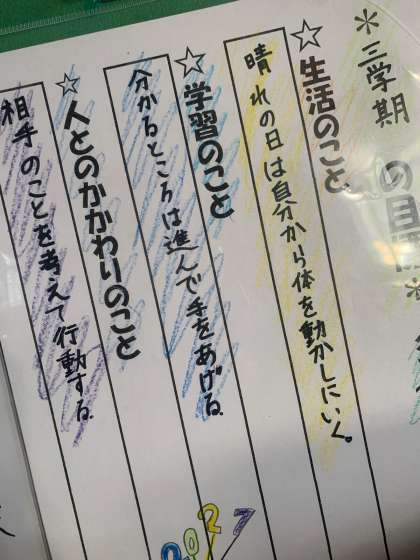 ＊三学期の目
☆生活のこと
晴れの日は自分から体を動かしにいく。
☆学習のこと
分かるところは進んで手をあげる。
☆人とのかかわりのこと
相手のことを考えて行動する。
2027